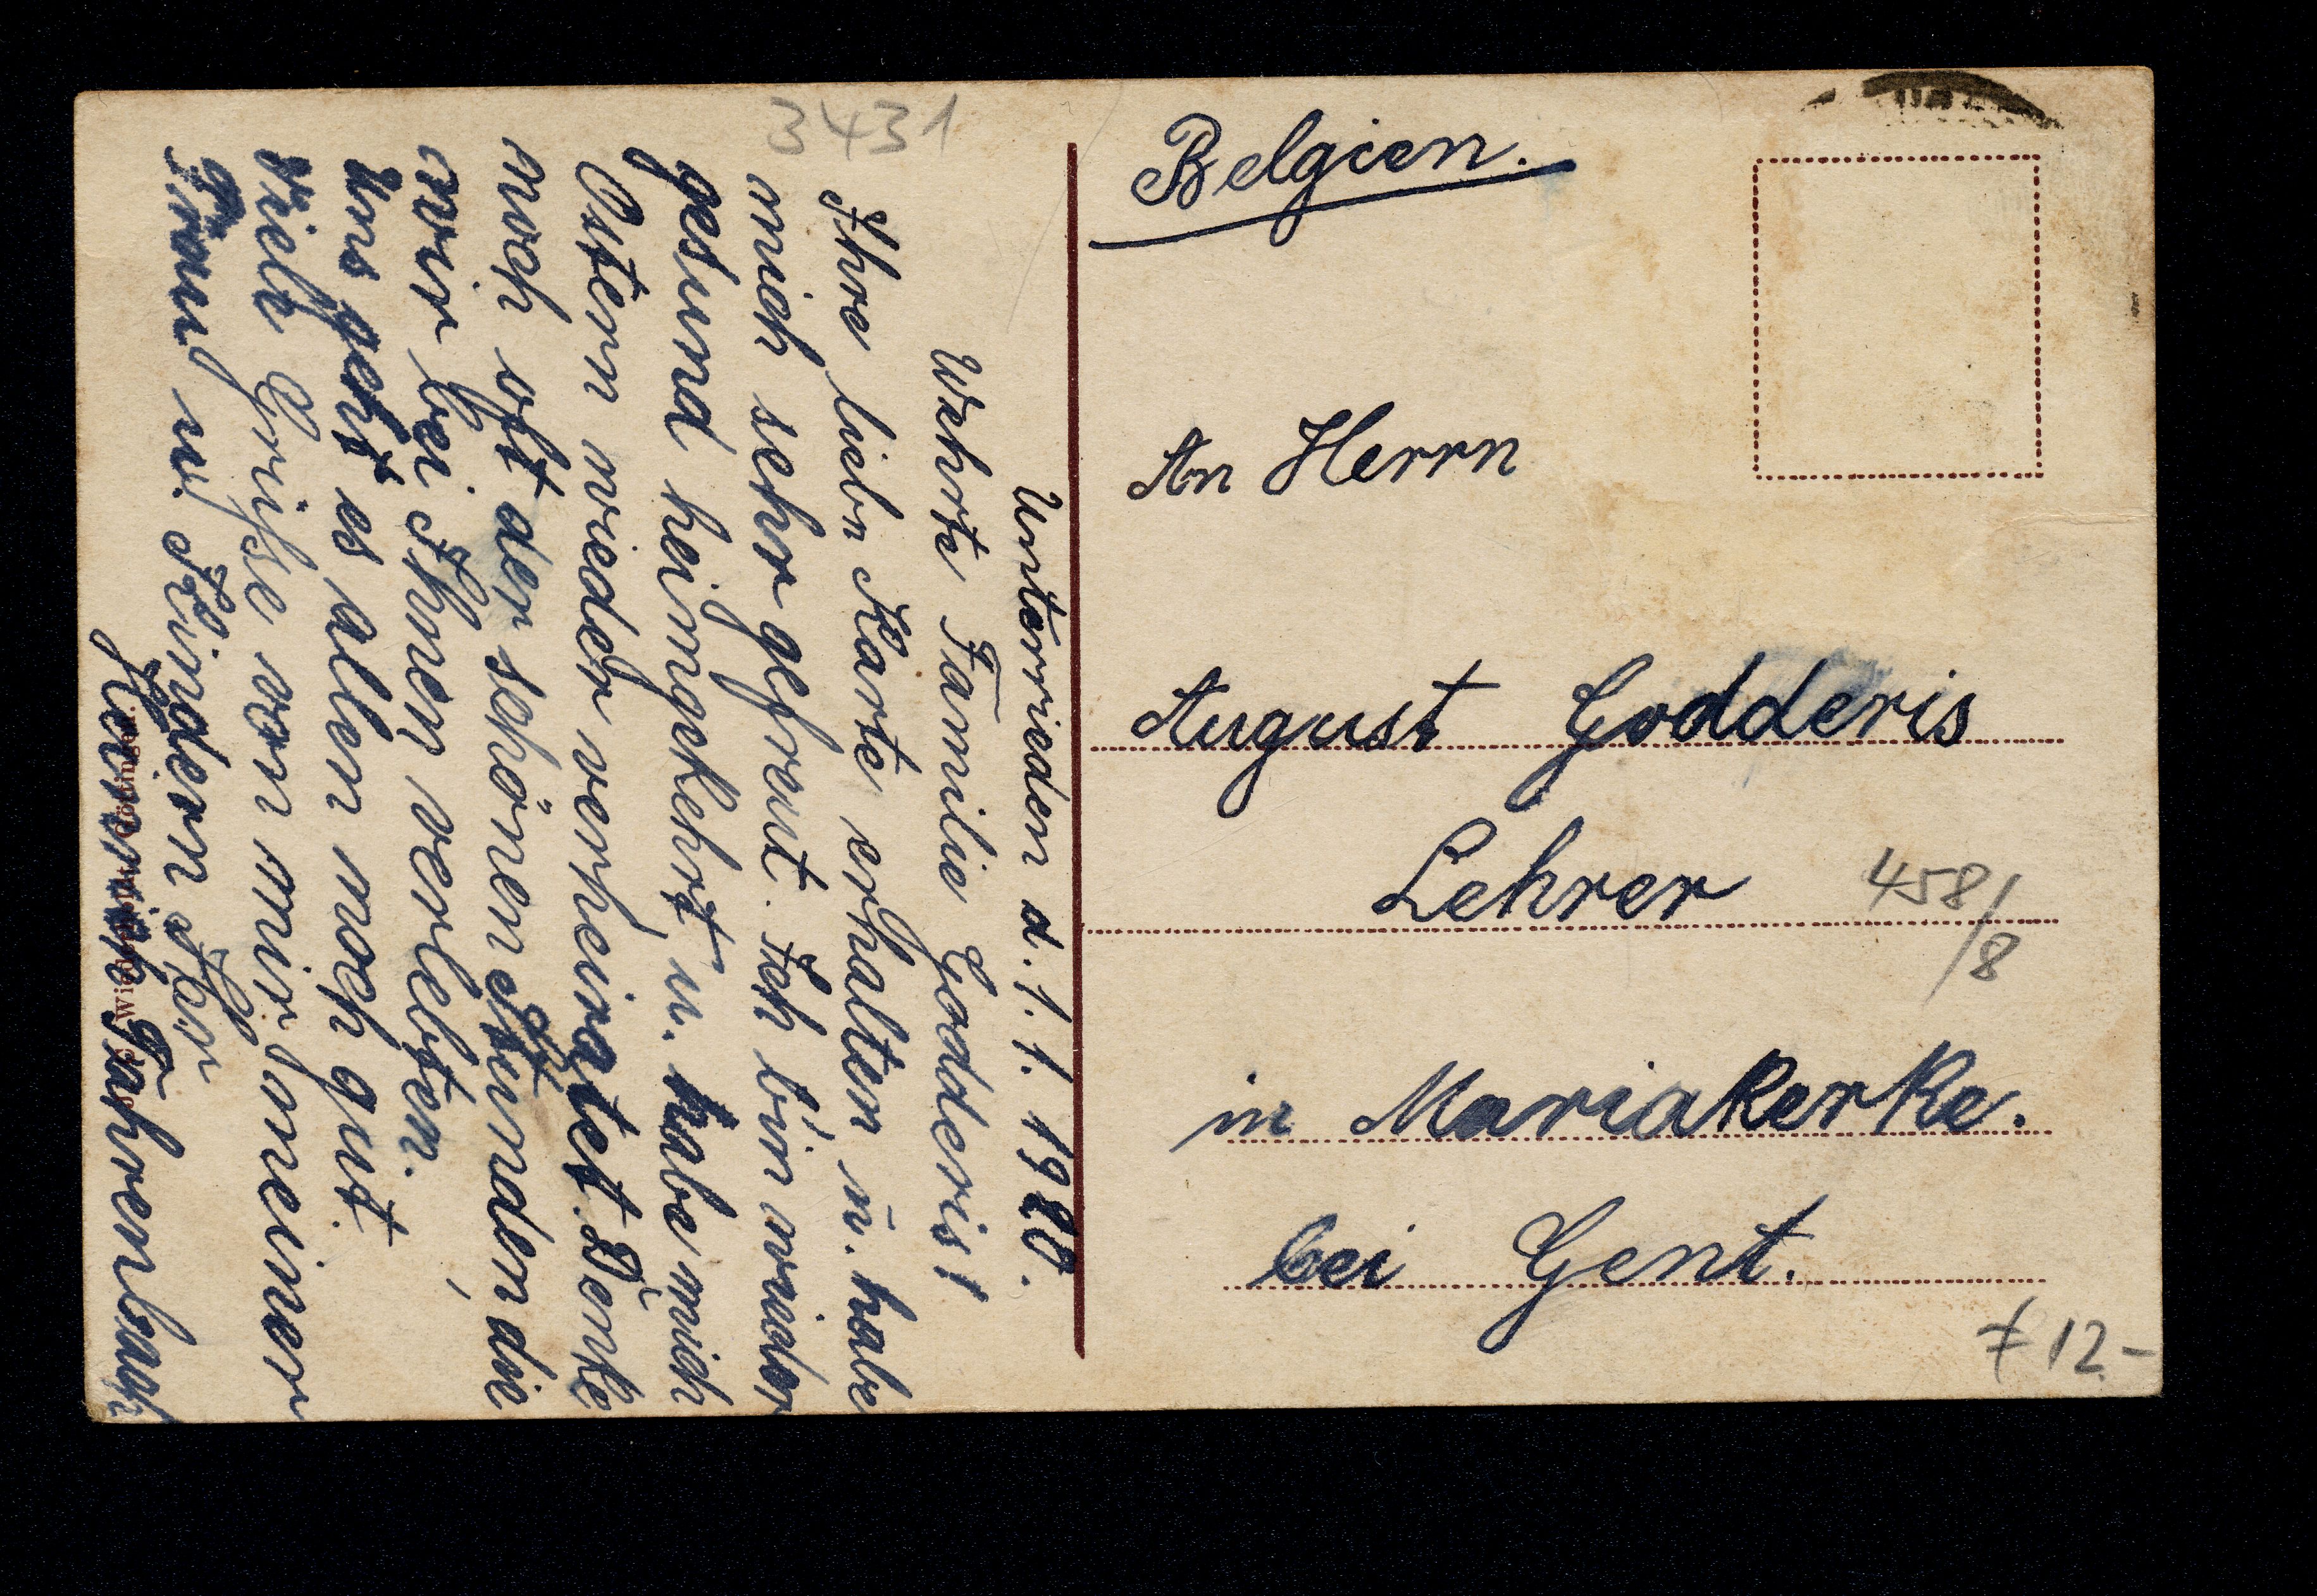 3431
Belgien.
An Herrn
August Godderis
Lehrer
458/8
in Mariakerke.
bei Gent.
₣ 12.-
Unterrieden d. 1. 1. 1920.
Wehrte Familie Godderis!
Ihre liebe Karte erhalten u. habe
mich sehr gefreut. Ich bin wieder
gesund heimgekehrt u. habe mich
Ostern wieder verheiratet. Denke
noch oft der schönen Stunden, die
wir bei Ihnen verlebten.
Uns geht es allen noch gut.
Viele Grüße von mir, meiner
Frau u. Kindern Ihr
Heinrich Fahrenbach